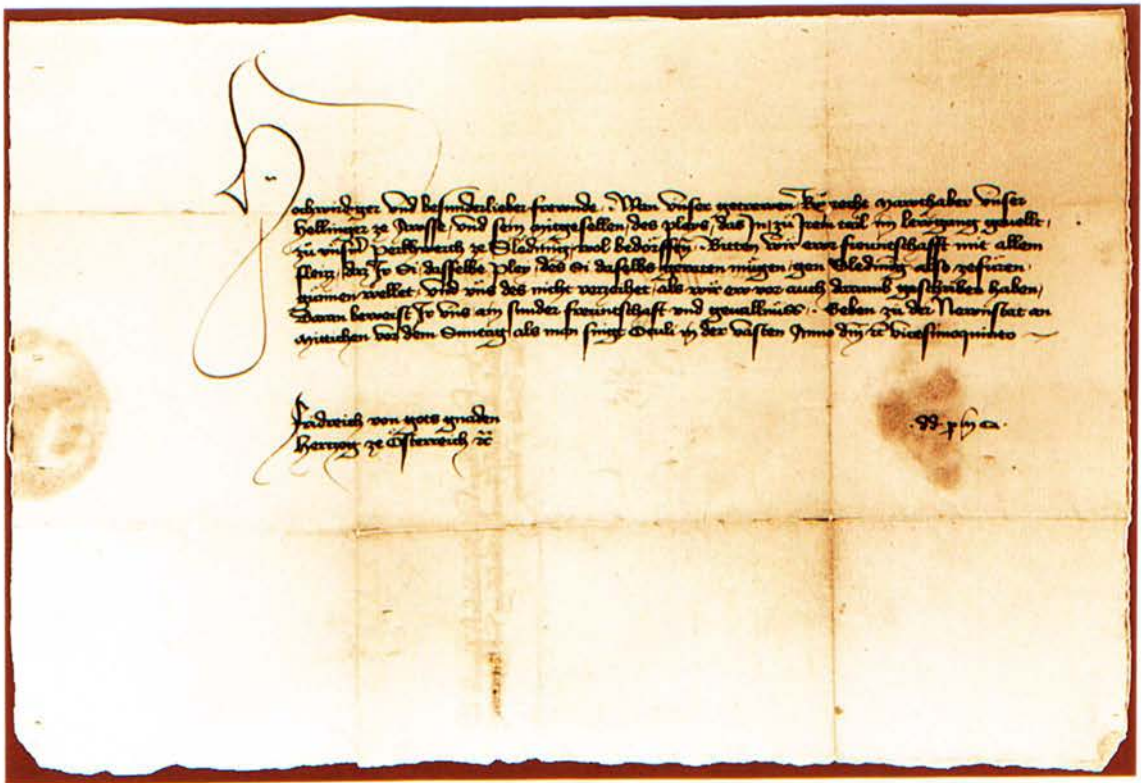 Hochwirdiger und besunderlieber frewnde. Wan unser getrewen
Hellinger ze und sein mitgesellen, des pleys, das In zu Irem teil im gevellt,
zu unserm perkhwerch ze Sledming wol bedörffen. Bitten wir ewr freuntschafft mit allem
fleiz, daz Ir Si, dasselbs pley, des Si daselbs geraten mügen, gen Sledming also zefüren
günnen wellet, und uns des nicht verzeihet, als wir ew vor auch darumb geschriben haben,
Daran beweist Ir uns ain sunder freuntschaft und gevallnüss. Geben zu der Newnstat an
Mitichen vor dem Sunntag als man singt Oculi in der vasten Anno dni etc vicesimoquinto
Fridreich von gots gnaden
Herczog ze Österreich etc
. dd. p